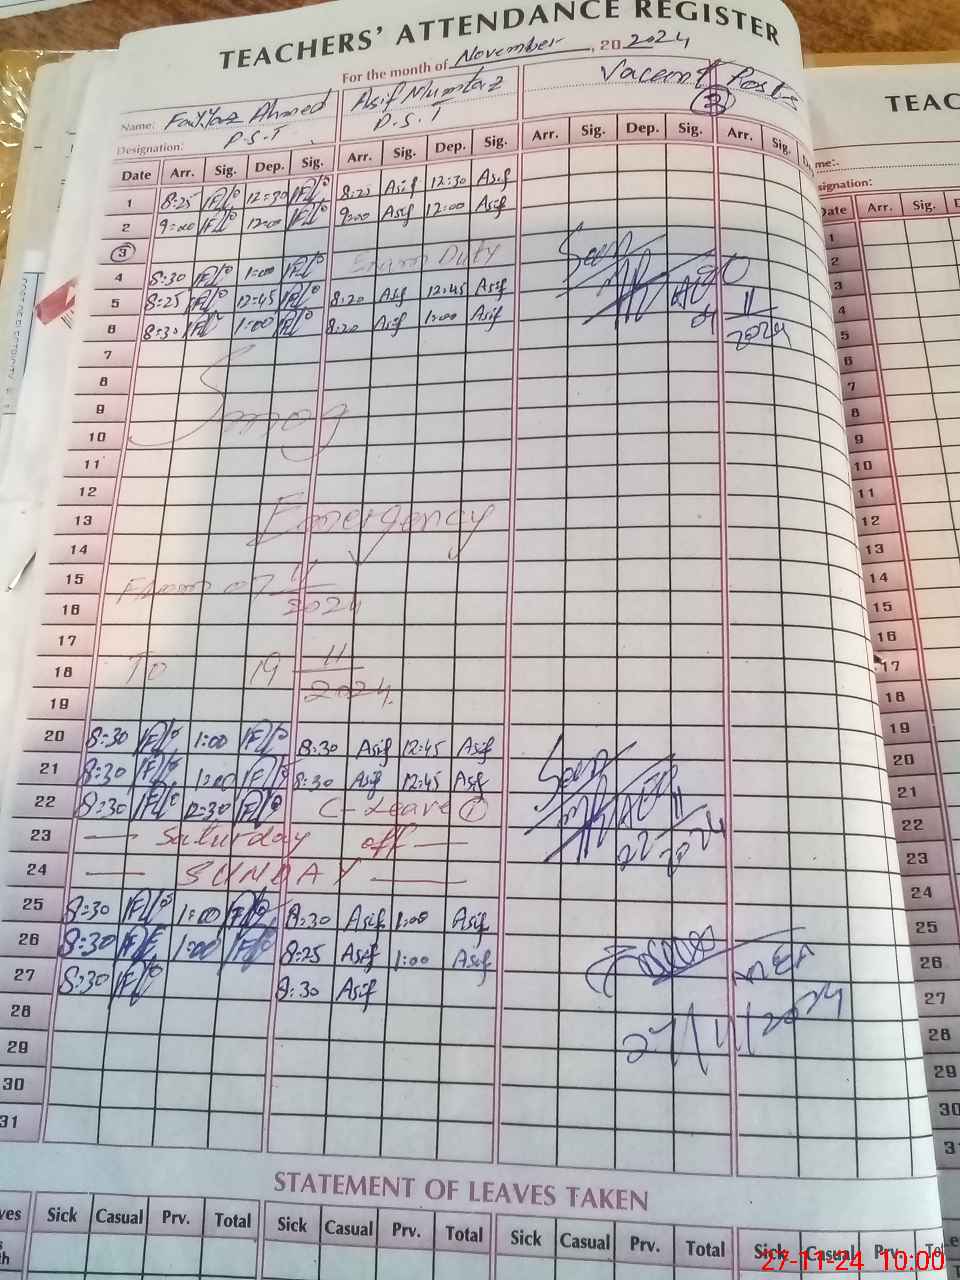 TEACHERS' ATTENDANCE REGISTER
For the month of November, 20 2024
Name: Ahmed Asif Mumtaz Vacent Posts
(2)
Designation: P.S.T P.S.T
Date Arr. Sig. Dep. Sig. Arr. Sig. Dep. Sig. Arr. Sig. Dep. Sig. Arr. Sig.
1 8:25 12:30 8:25 Asif 12:30 Asif
2 9:00 12:00 9:00 Asif 12:00 Asif
3
4 8:30 1:00 Exam Duty
5 8:25 12:45 8:20 Asif 12:45 Asif
6 8:30 1:00 8:20 Asif 1:00 Asif
11
2024
7
8
9 Smog
10
11
12
13 Emergency
14
15 From 07 11
16 2024
17
18 To 19 11
19 2024
20 8:30 1:00 8:30 Asif 12:45 Asif
21 8:30 1:00 8:30 Asif 12:45 Asif
22 8:30 12:30 C-Leave (1)
22 11
2024
23 — Saturday off —
24 — SUNDAY —
25 8:30 1:00 8:30 Asif 1:00 Asif
26 8:30 1:00 8:25 Asif 1:00 Asif
MEA
27 8:30 8:30 Asif
27/11/2024
28
29
30
31
STATEMENT OF LEAVES TAKEN
ves Sick Casual Prv. Total Sick Casual Prv. Total Sick Casual Prv. Total Sick Casual Prv.
TEAC
me:
signation:
Date Arr. Sig. D
1
2
3
4
5
6
7
8
9
10
11
12
13
14
15
16
17
18
19
20
21
22
23
24
25
26
27
28
29
30
27-11-24 10:00